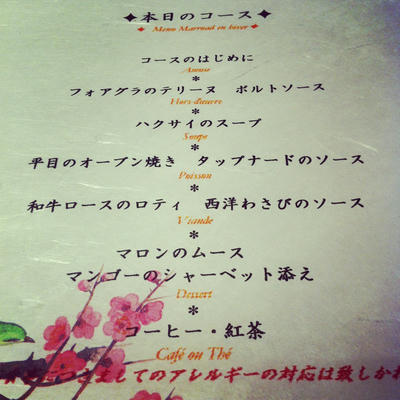 ✦本日のコース✦
✦ Menu Marruad en hiver ✦
コースのはじめに
Amuse
*
フォアグラのテリーヌ ポルトソース
Hors-d'œuvre
*
ハクサイのスープ
Soupe
*
平目のオーブン焼き タップナードのソース
Poisson
*
和牛ロースのロティ 西洋わさびのソース
Viande
*
マロンのムース
マンゴーのシャーベット添え
Dessert
*
コーヒー・紅茶
Café ou Thé
つきましてのアレルギーの対応は致しかね